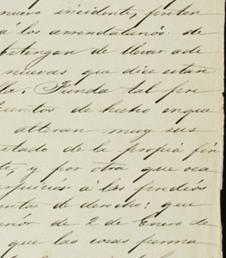 nuevo incidente, preten
á los arrendatarios de
abstengan de llevar ade
nuevas que dice estan
la. Funda tal pre
puntos de hecho en que
alteran muy sus
estado de la propia fin
te, y por otra que sea
perjuicios á los predios
entos de derecho: que
de 2 de Enero de
que las cosas perma